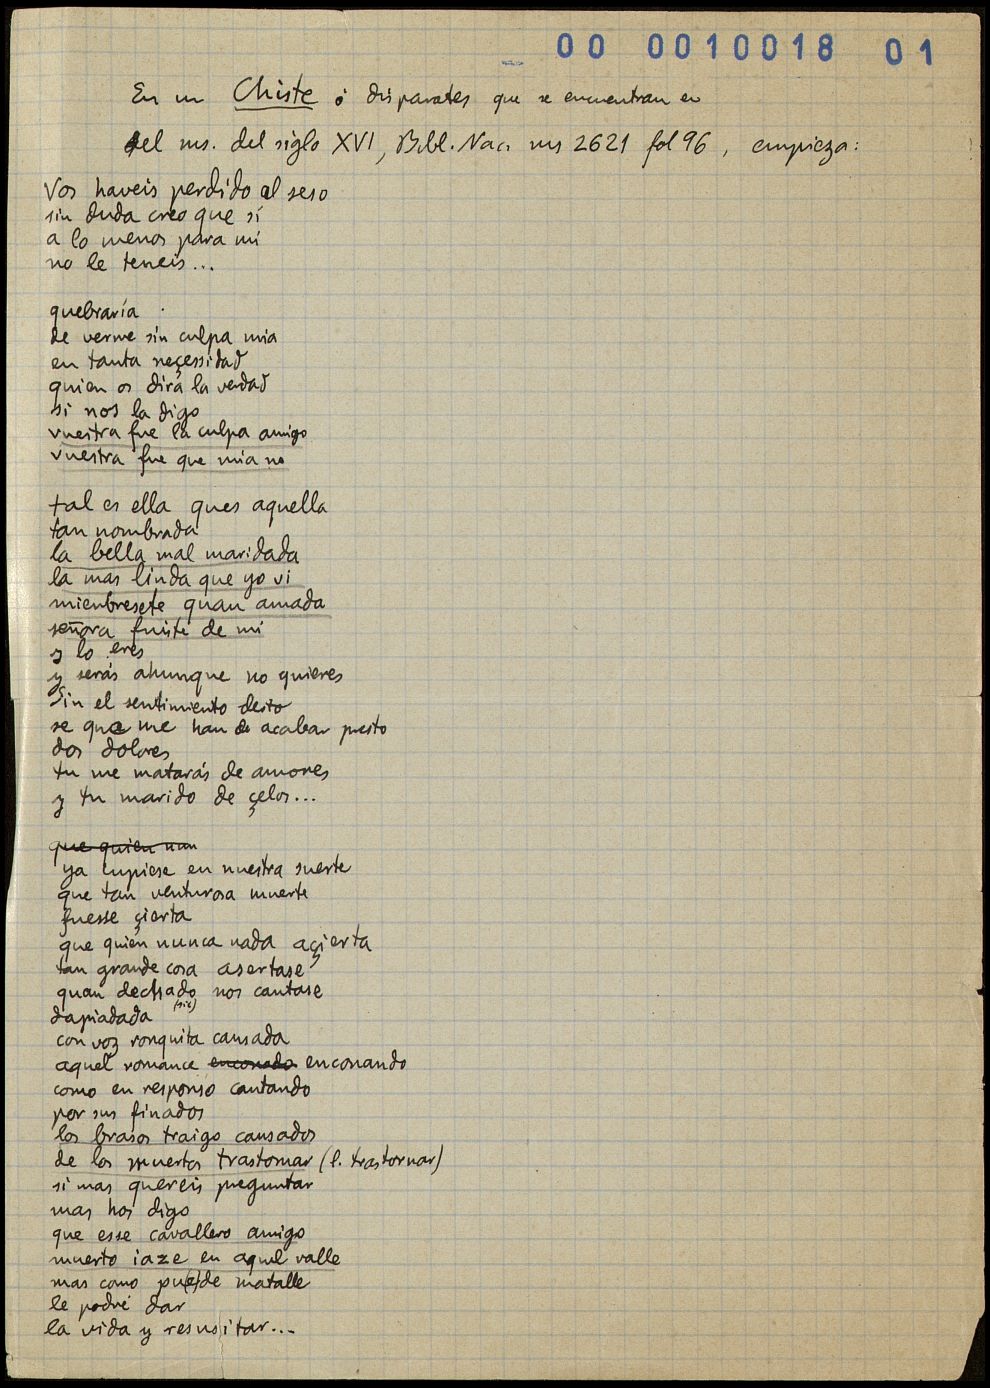 00 0010018 01
En un Chiste ó disparates que se encuentran en
del ms. del siglo XVI, Bibl. Nac. ms 2621 fol 96, empieza:
Vos haveis perdido el seso
sin duda creo que sí
a lo menos para mi
no le teneis...
quebraría
de verme sin culpa mia
en tanta neçessidad
quien os dirá la verdad
si nos la digo
vuestra fue la culpa amigo
vuestra fue que mia no
tal es ella ques aquella
tan nombrada
la bella mal maridada
la mas linda que yo vi
miembresete quan amada
señora fuiste de mi
y lo eres
y serás ahunque no quieres
Sin el sentimiento desto
se que me han de acabar presto
dos dolores
tu me matarás de amores
y tu marido de çelos...
que quien nun
ya cupiese en nuestra suerte
que tan venturosa muerte
fuesse çierta
que quien nunca nada açierta
tan grande cosa asertase
quan dechado nos cantase
(sic)
dapiadada
con voz ronquita cansada
aquel romance enconado enconando
como en responso cantando
por sus finados
los brasos traigo cansados
de los muertos trastomar (l. trastornar)
si mas quereis preguntar
mas hos digo
que esse cavallero amigo
muerto iaze en aquel valle
mas como pu(e)de matalle
le podré dar
la vida y resusitar...